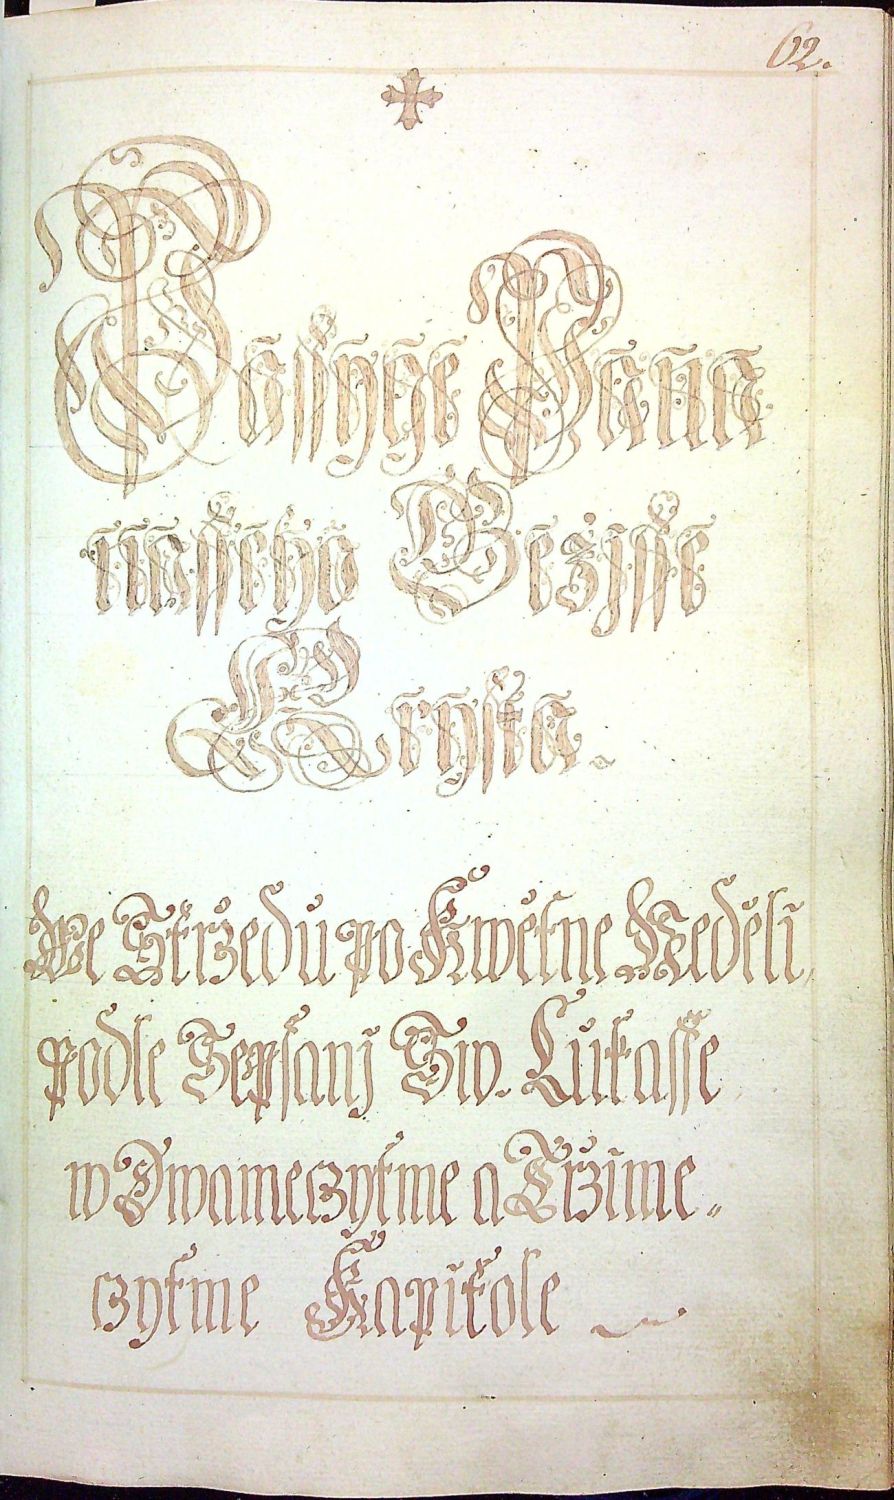 62.
Passyge Pana
nassseho Gezjsse
Krysta.
We Strzedu po Kwětne Neděli,
podle Sepsanj Sw. Lukasse
w Dwameczytme a Trzime„
czytme Kapitole